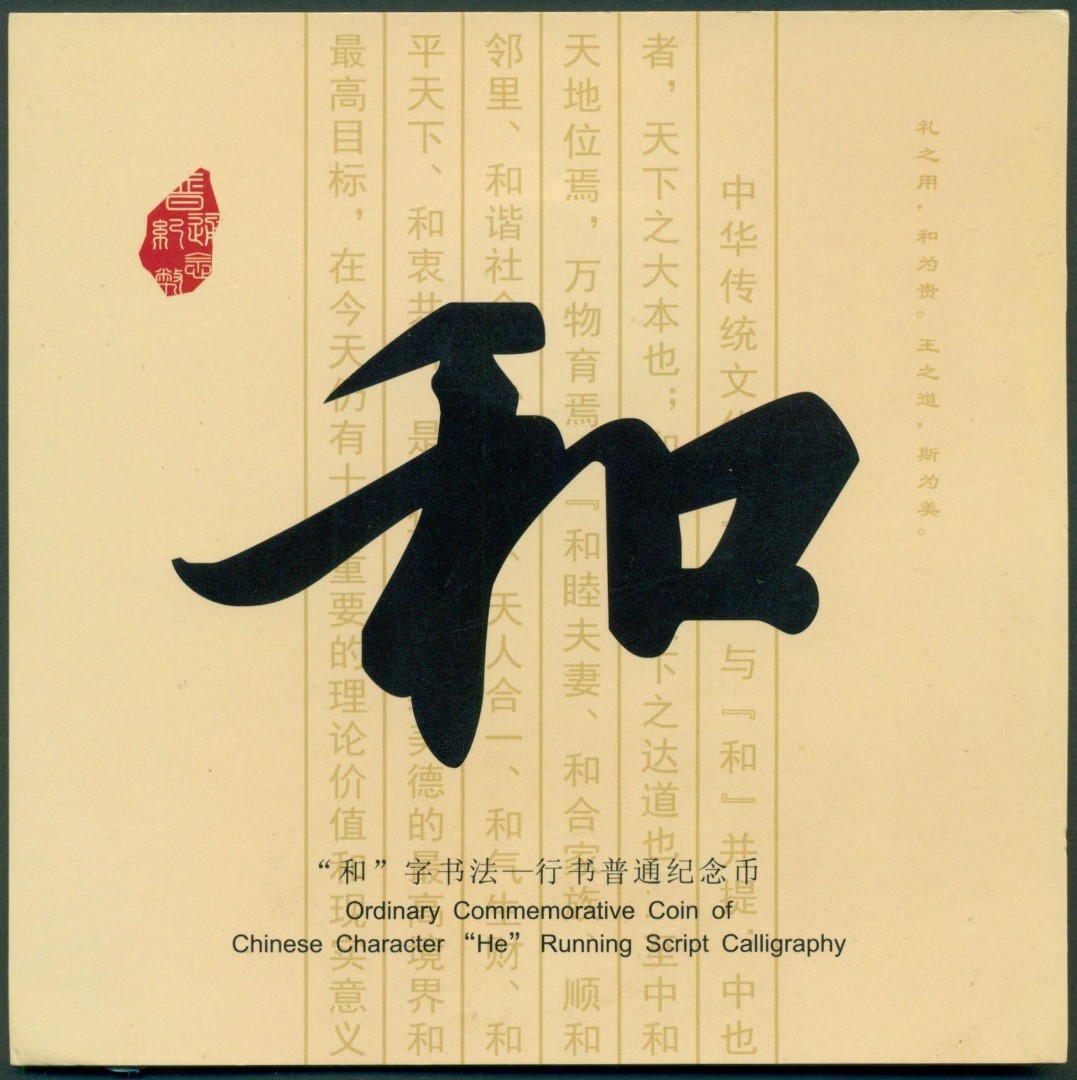 礼之用，和为贵。王之道，斯为美。
中华传统文化 与『和』并提．中也
者，天下之大本也；和 下之达道也 中和
天地位焉，万物育焉 『和睦夫妻、和合家族、顺和
邻里、和谐社会、 天人合一、和气生财、和
平天下、和衷共 是 美德的最高境界和
最高目标，在今天仍有十 重要的理论价值和现实意义
普通紀念幣
和
“和”字书法—行书普通纪念币
Ordinary Commemorative Coin of
Chinese Character “He” Running Script Calligraphy